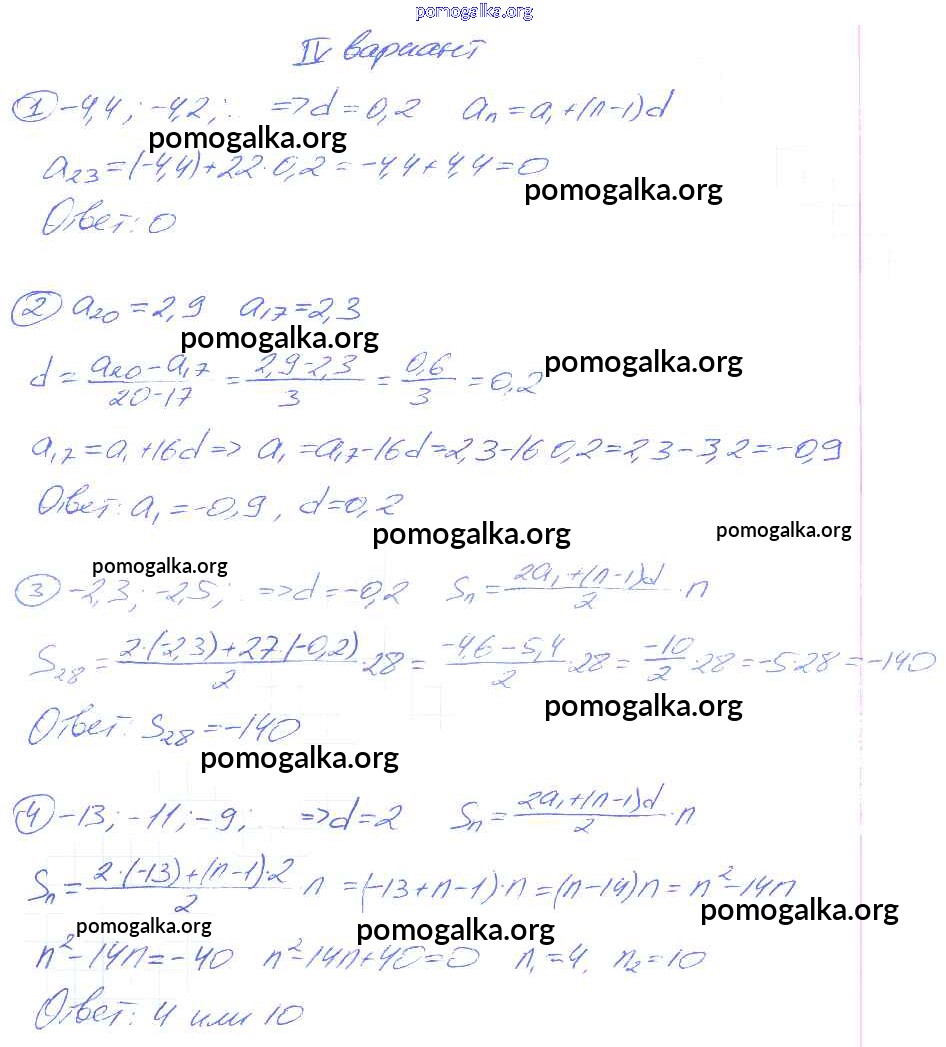 pomogalka.org
IV вариант
① -4,4; -4,2; ... => d = 0,2 aₙ = a₁ + (n-1)d
pomogalka.org
a₂₃ = (-4,4) + 22 · 0,2 = -4,4 + 4,4 = 0
pomogalka.org
Ответ: 0
② a₂₀ = 2,9 a₁₇ = 2,3
pomogalka.org
d = (a₂₀ - a₁₇)/(20-17) = (2,9-2,3)/3 = 0,6/3 = 0,2
pomogalka.org
a₁₇ = a₁ + 16d => a₁ = a₁₇ - 16d = 2,3 - 16 0,2 = 2,3 - 3,2 = -0,9
Ответ: a₁ = -0,9, d = 0,2
pomogalka.org
pomogalka.org
pomogalka.org
③ -2,3; -2,5; ... => d = -0,2 Sₙ = (2a₁ + (n-1)d)/2 · n
S₂₈ = (2·(-2,3) + 27·(-0,2))/2 · 28 = (-4,6 - 5,4)/2 · 28 = -10/2 · 28 = -5·28 = -140
pomogalka.org
Ответ: S₂₈ = -140
pomogalka.org
④ -13; -11; -9; ... => d = 2 Sₙ = (2a₁ + (n-1)d)/2 · n
Sₙ = (2·(-13) + (n-1)·2)/2 n = (-13 + n - 1)·n = (n-14)n = n² - 14n
pomogalka.org
pomogalka.org
pomogalka.org
n² - 14n = -40 n² - 14n + 40 = 0 n₁ = 4, n₂ = 10
Ответ: 4 или 10